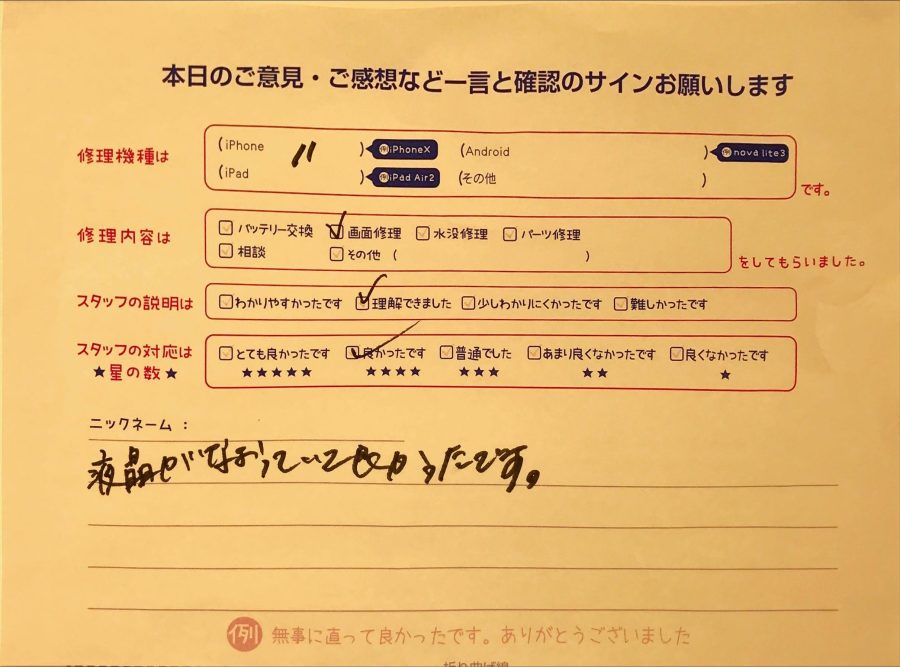 本日のご意見・ご感想など一言と確認のサインお願いします
修理機種は
(iPhone 11 ) 例iPhoneX (Android ) 例nova lite3
(iPad ) 例iPad Air2 (その他 ) です。
修理内容は
バッテリー交換 画面修理 水没修理 パーツ修理
相談 その他 ( ) をしてもらいました。
スタッフの説明は わかりやすかったです 理解できました 少しわかりにくかったです 難しかったです
スタッフの対応は とても良かったです 良かったです 普通でした あまり良くなかったです 良くなかったです
★星の数★ ★★★★★ ★★★★ ★★★ ★★ ★
ニックネーム：
液晶がなおっていて良かったです。
例 無事に直って良かったです。ありがとうございました